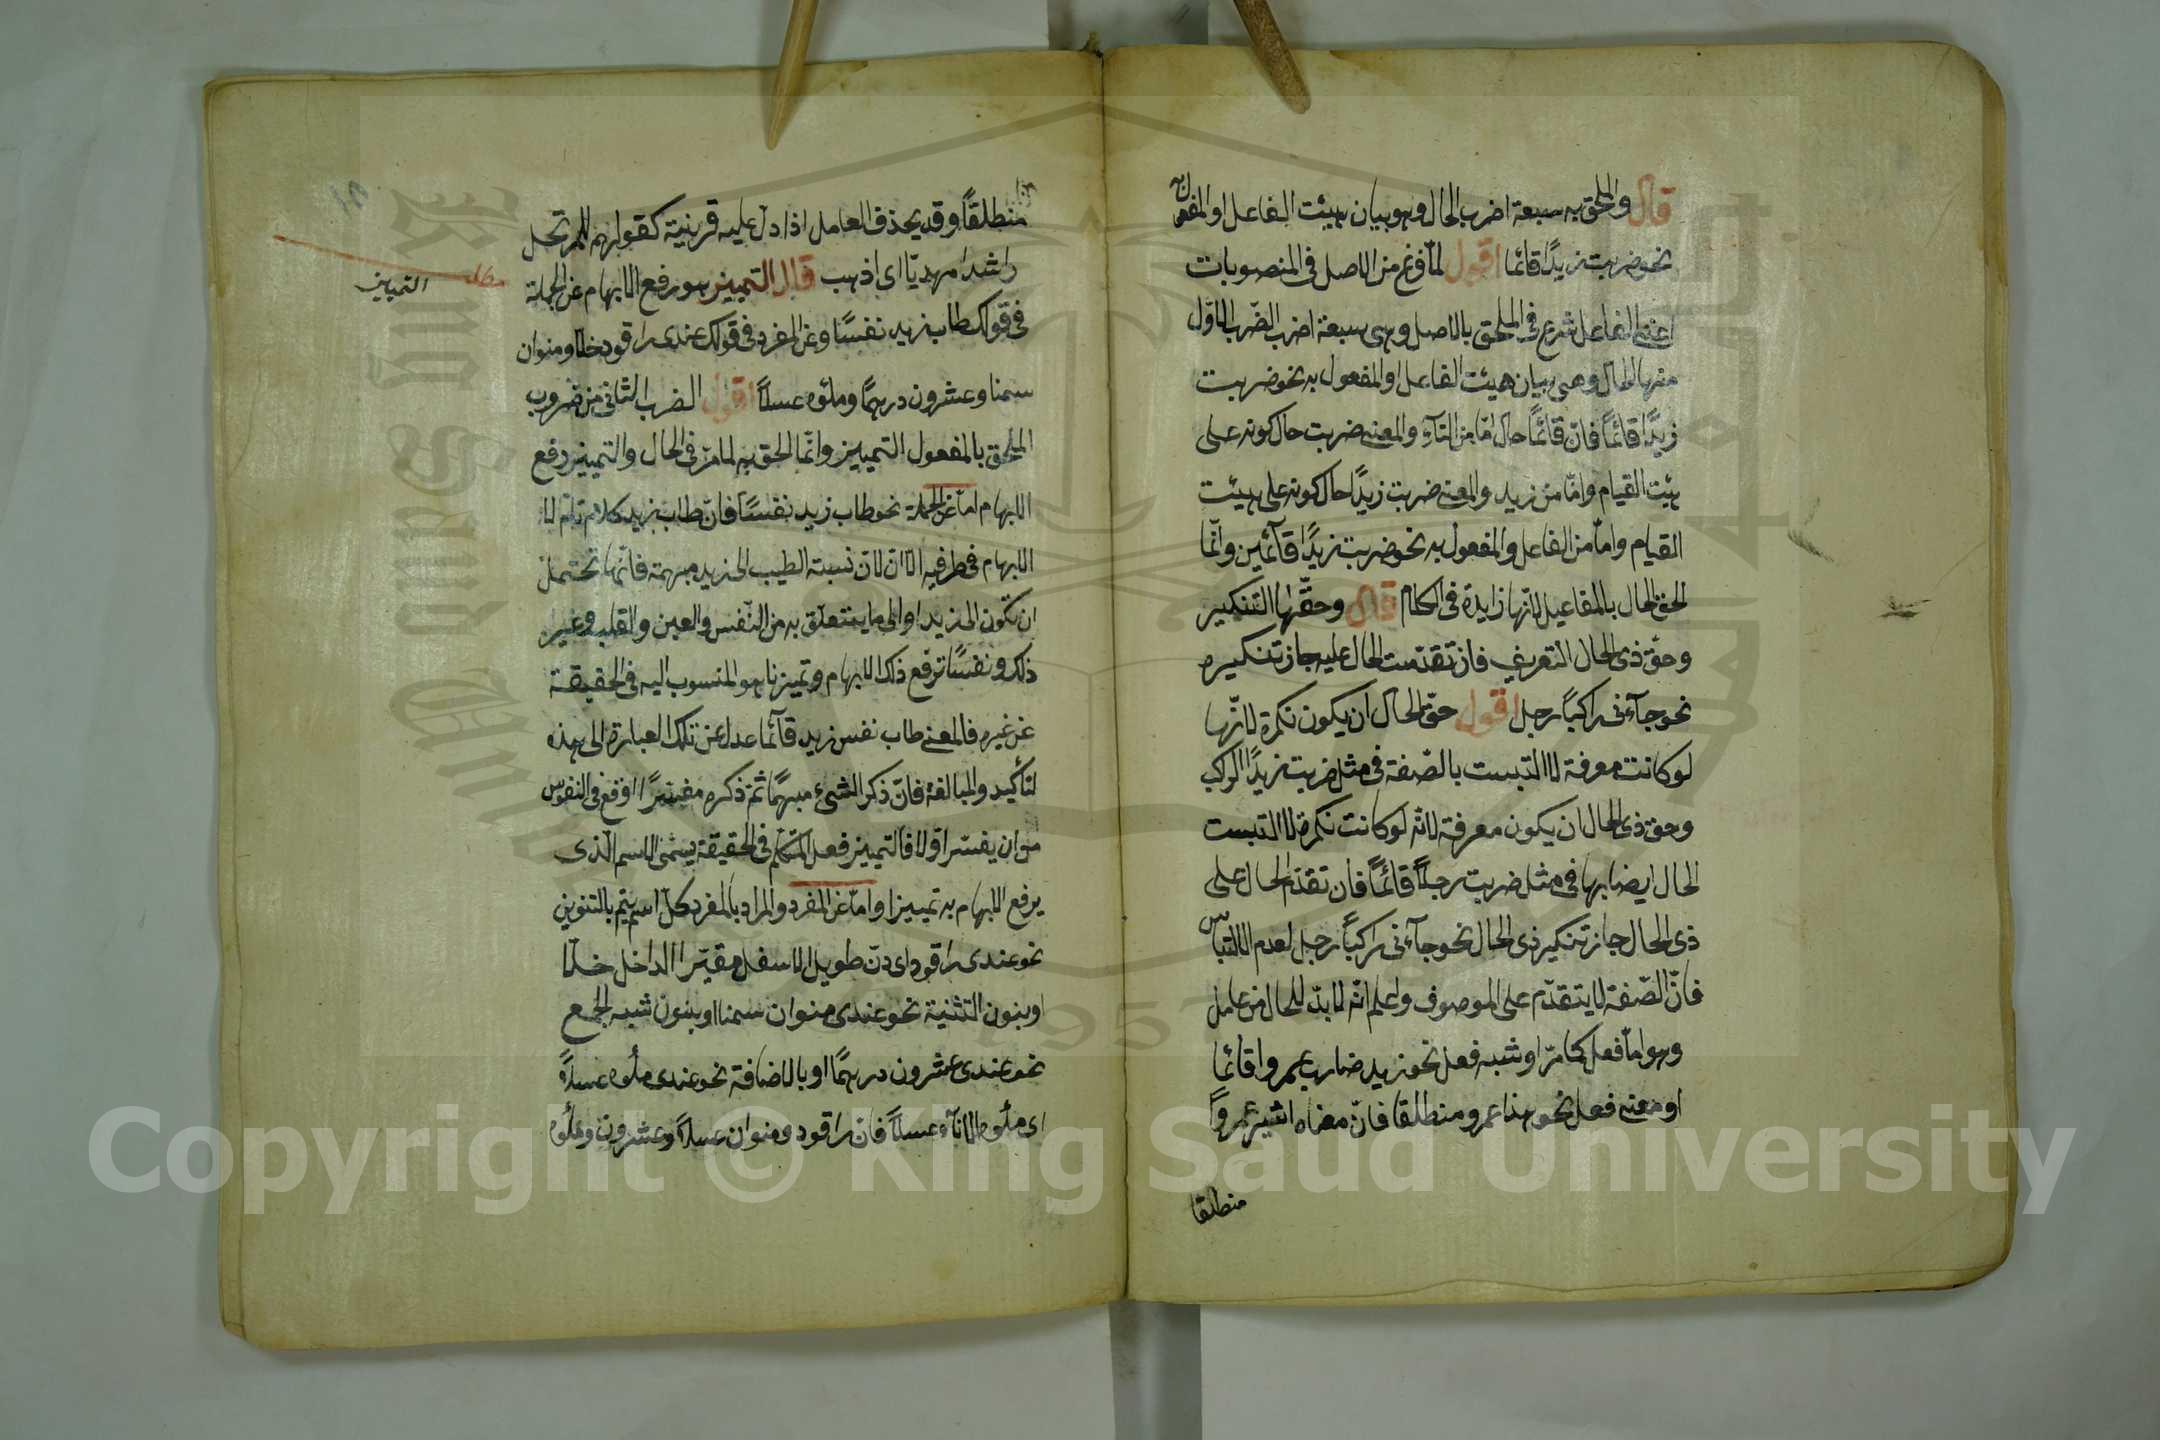 قال والملحق به سبعة اضرب الحال وهو بيان هيئت الفاعل او المفعول به
نحو ضربت زيدًا قائما اقول لمّا فرغ من الاصل فى المنصوبات
اعنى المفاعيل شرع فى الملحق بالاصل وهى سبعة اضرب الضّرب الاوّل
منها الحال وهى بيان هيئت الفاعل او المفعول به نحو ضربت
زيدًا قائمًا فانّ قائمًا حال امّا من التآء والمعنى ضربت حال كونه على
هيئت القيام وامّا من زيد والمعنى ضربت زيدًا حال كونه على هيئت
القيام وامّا من الفاعل والمفعول به نحو ضربت زيدًا قآئمين وانّما
الحق الحال بالمفاعيل لانّها زايدة فى الكلام قال وحقّها التنكير
وحق ذى الحال التعريف فان تقدّمت الحال عليه جاز تنكيره
نحو جآءنى راكبًا رجل اقول حقّ الحال ان يكون نكرة لانّها
لو كانت معرفة لالتبست بالصّفة فى مثل ضربت زيدًا الراكب
وحق ذى الحال ان يكون معرفة لانّه لو كانت نكرة لالتبست
الحال ايضا بها فى مثل ضربت رجلًا قائمًا فان تقدّم الحال على
ذى الحال جاز تنكير ذى الحال نحو جآءنى راكبًا رجل لعدم الالتباس
فانّ الصّفة لا يتقدّم على الموصوف واعلم انّه لا بدّ للحال من عامل
وهو امّا فعل كما مرّ او شبه فعل نحو زيد ضارب عمروا قائما
او معنى فعل نحو هذا عمرو منطلقا فانّ معناه اشير عمروًا
منطلقا
منطلقًا وقد يحذف العامل اذا دلّ عليه قرينة كقولهم للمرتحل
راشدا مهديّا اى اذهب قال التمييز هو رفع الابهام عن الجملة
فى قولك طاب زيد نفسًا وعن المفرد فى قولك عندى راقود خلّا ومنوان
سمنا وعشرون درهمًا وملؤه عسلًا اقول الضرب الثانى من ضروب
الملحق بالمفعول التمييز وانّما الحق به لما مرّ فى الحال والتمييز رفع
الابهام امّا عن الجملة نحو طاب زيد نفسًا فانّ طاب زيد كلام تامّ لا
الابهام فى طرفيه الا ان نسبة الطيب الى زيد مبهمة فانّها تحتمل
ان تكون الى زيد او الى ما يتعلّق به من النّفس والعين والقلب وغير
ذلك ونفسًا ترفع ذلك الابهام وتميز ما هو المنسوب اليه فى الحقيقة
عن غيره فالمعنى طاب نفس زيد قآئما عدل عن تلك العبارة الى هذه
لتأكيد والمبالغة فانّ ذكر الشئ مبهمًا ثمّ ذكره مفسّرًا اوقع فى النفوس
من ان يفسّر اوّلا فالتمييز فعل المتكلّم فى الحقيقة يسمّى الاسم الّذى
يرفع الابهام به تمييزا وامّا عن المفرد والمراد بالمفرد كلّ اسم يتم بالتنوين
نحو عندى راقود اى دنّ طويل الاسفل مقيّرا الداخل خلّا
او بنون التثنية نحو عندى منوان سمنا او بنون شبه الجمع
نحو عندى عشرون درهمًا او بالاضافة نحو عندى ملؤه عسلًا
اى ملؤه الانآء عسلًا فان راقود ومنوان عسلًا وعشرون وملؤه
مطلب التمييز
Copyright © King Saud University